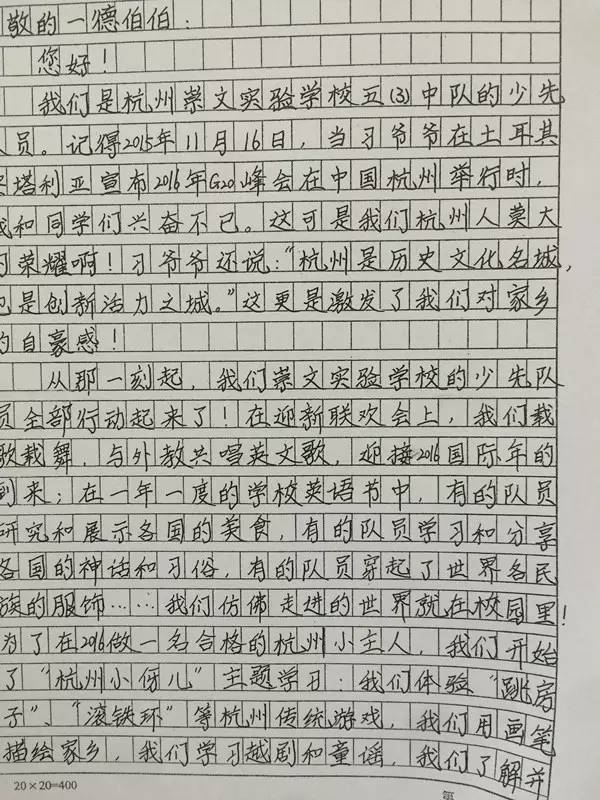 敬的一德伯伯：
您好！
我们是杭州崇文实验学校五(3)中队的少先
员。记得2015年11月16日，当习爷爷在土耳其
塔利亚宣布2016年G20峰会在中国杭州举行时，
我和同学们兴奋不已。这可是我们杭州人莫大
的荣耀啊！习爷爷还说：“杭州是历史文化名城，
也是创新活力之城。”这更是激发了我们对家乡
的自豪感！
从那一刻起，我们崇文实验学校的少先队
员全部行动起来了！在迎新联欢会上，我们载
歌载舞，与外教共唱英文歌，迎接2016国际年的
到来；在一年一度的学校英语节中，有的队员
研究和展示各国的美食，有的队员学习和分享
各国的神话和习俗，有的队员穿起了世界各民
族的服饰……我们仿佛走进的世界就在校园里！
为了在2016做一名合格的杭州小主人，我们开始
了“杭州小伢儿”主题学习：我们体验“跳房
子”、“滚铁环”等杭州传统游戏，我们用画笔
描绘家乡，我们学习越剧和童谣，我们了解并
20×20=400
第